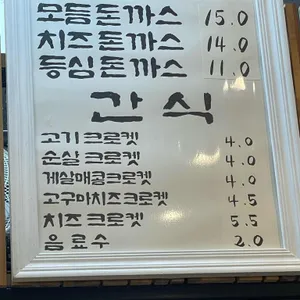 모듬돈까스 15.0
치즈돈까스 14.0
등심돈까스 11.0
간식
고기크로켓 4.0
순살크로켓 4.0
게살매콤크로켓 4.0
고구마치즈크로켓 4.5
치즈크로켓 5.5
음료수 2.0